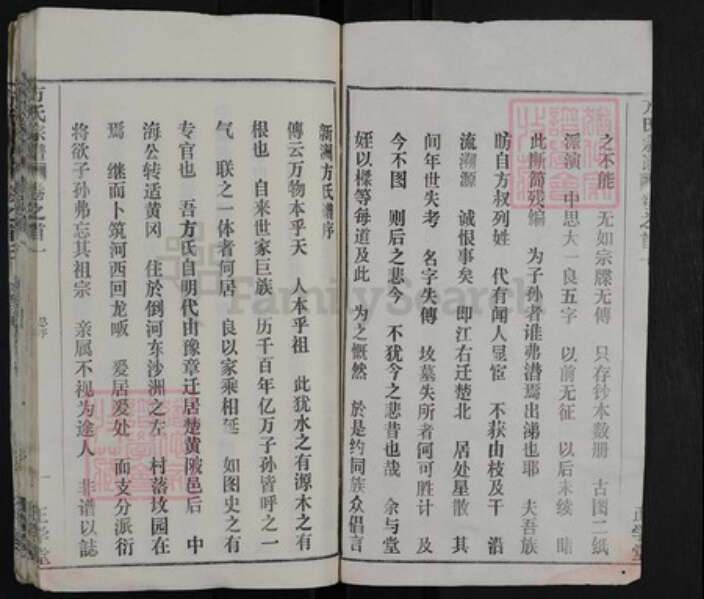 之不能 无如宗牒无傳 只存钞本数册 古图二纸
派演 中思大一良五字 以前无征 以后未续 睹
此断简残编 为子孙者谁弗潸焉出涕也耶 夫吾族
昉自方叔列姓 代有闻人显宦 不获由枝及干 沿
流溯源 诚恨事矣 即江右迁楚北 居处星散 其
间年世失考 名字失傳 坟墓失所者何可胜计 及
今不图 则后之悲今 不犹今之悲昔也哉 余与堂
姪以樑等每道及此 为之慨然 於是约同族众倡言
正学堂
新洲方氏谱序
傳云万物本乎天 人本乎祖 此犹水之有源木之有
根也 自来世家巨族 历千百年亿万子孙皆呼之一
气 联之一体者何居 良以家乘相延 如图史之有
专官也 吾方氏自明代由豫章迁居楚黄陂邑后 中
海公转适黄冈 住於倒河东沙洲之左 村落坟园在
焉 继而卜筑河西回龙畈 爰居爰处 面支分派衍
将欲子孙弗忘其祖宗 亲属不视为途人 非谱以誌
方氏宗谱 卷之首一
一 正学堂
FamilySearch